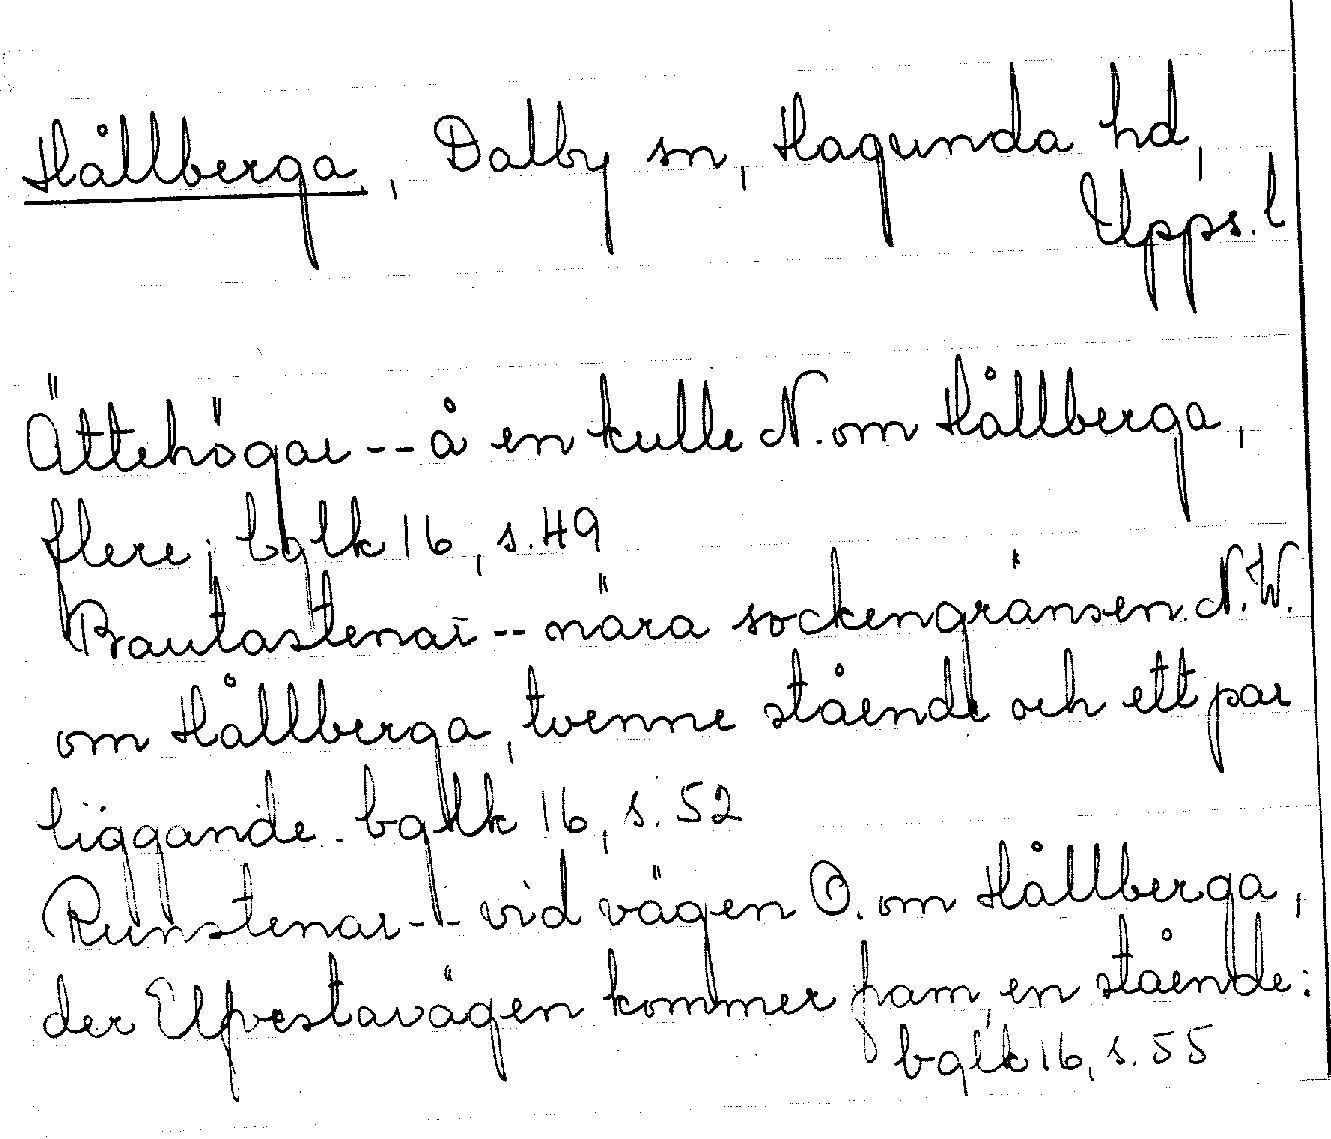 Hållberga, Dalby sn, Hagunda hd,
Upps. l
Ättehögar -- å en kulle N. om Hållberga,
flere; bglk 16, s. 49
Bautastenar -- nära sockengränsen N.W.
om Hållberga, tvenne stående och ett par
liggande. bglk 16, s. 52
Runstenar -- vid vägen O. om Hållberga,
der Elfvestavägen kommer fram, en stående:
bglk 16, s. 55